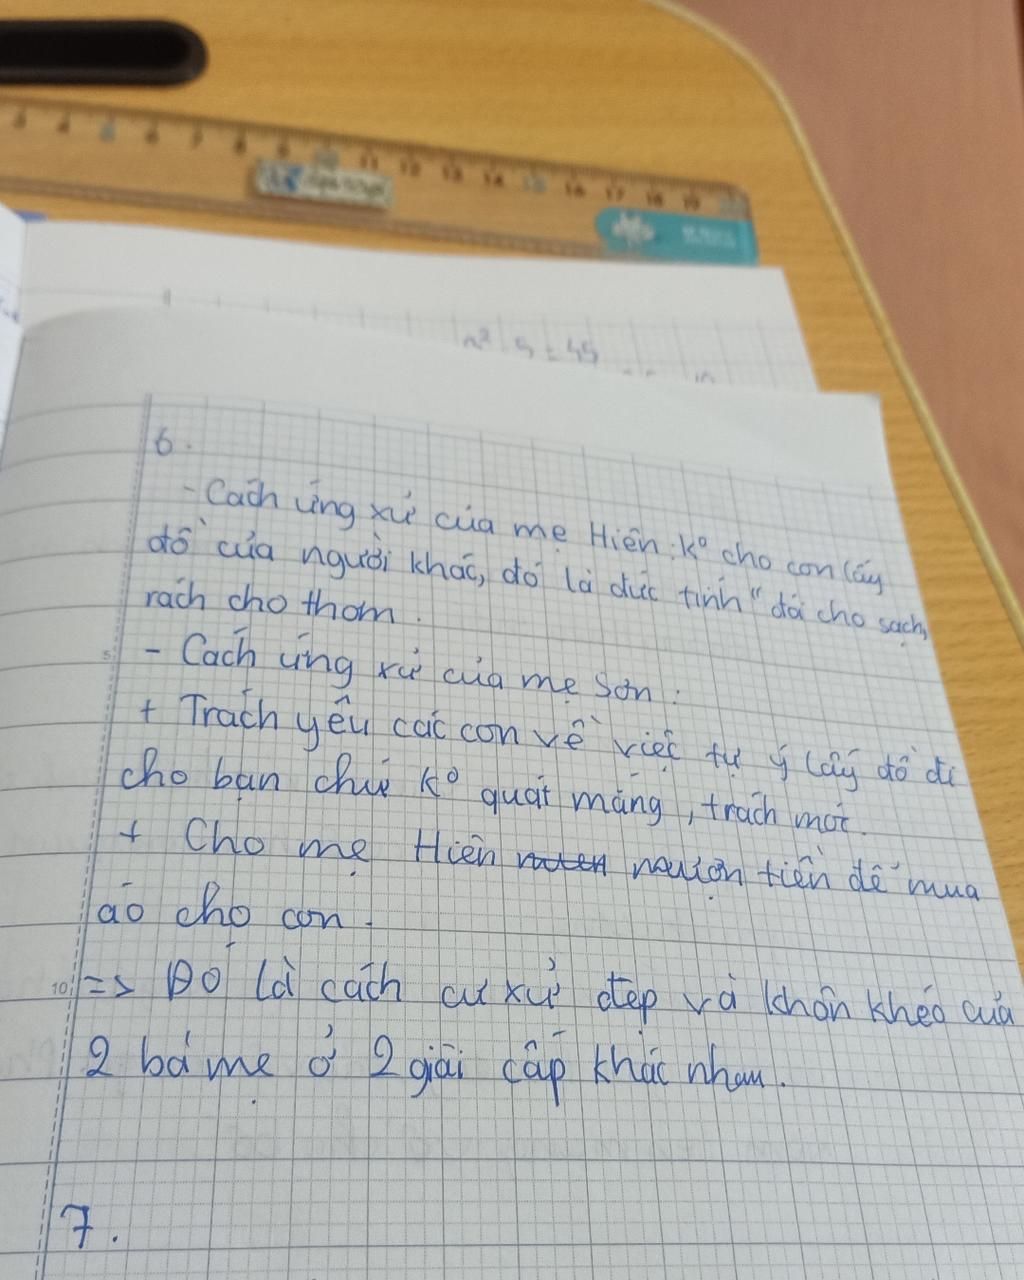 3 4 5 6 7 8 9 10 11 12 13 14 15 16 17 18 19 20
n² . 5 = 45
6.
- Cách ứng xử của mẹ Hiên: K° cho con lấy
đồ của người khác, đó là đức tính "đói cho sạch,
rách cho thơm.
5
- Cách ứng xử của mẹ Sơn:
+ Trách yêu các con về việc tự ý lấy đồ đi
cho bạn chứ K° quát mắng, trách móc.
+ Cho mẹ Hiên mượn tiền để mua
áo cho con.
10
=> Đó là cách cư xử đẹp và khôn khéo của
2 bà mẹ ở 2 giai cấp khác nhau.
7.